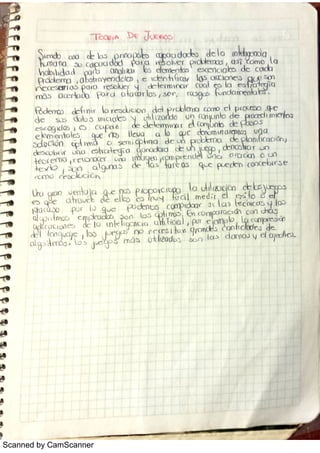 TEORIA DE JUEGOS
Siendo una de las principales capacidades de la inteligencia
humana su capacidad para resolver problemas, así como la
habilidad para analizar los elementos esenciales de cada
problema, abstrayendolos, e identificar las acciones que son
necesarias para resolver y determinar cual es la estrategia
más acertada para atacarlos, ser, rasgos fundamentales.
Podemos definir la resolución del problema como el proceso que
de sus datos iniciales y utilizando un conjunto de procedimientos
escogidos, es capaz de determinar el conjunto de pasos
elementales que nos lleva a lo que denominaremos una
solución optima o semi optima de un problema de planificación,
descubrir una estrategia ganadora de un juego, demostrar un
teorema, reconocer una imagen, comprender una oración o un
texto, son algunas de las tareas que pueden concebirse
como resolución.
Una gran ventaja que nos proporciona la utilización de los juegos
es que atravez de ellos es muy facil medir el exito o el
fracaso, por lo que podemos comprobar si las técnicas y los
algoritmos empleados son los optimos. En comparación con otras
aplicaciones de la inteligencia artificial, por ejemplo, la comprensión
del lenguaje, los juegos no necesitan grandes cantidades de
algoritmos. los juegos más utilizados son las damas y el ajedrez.
Scanned by CamScanner